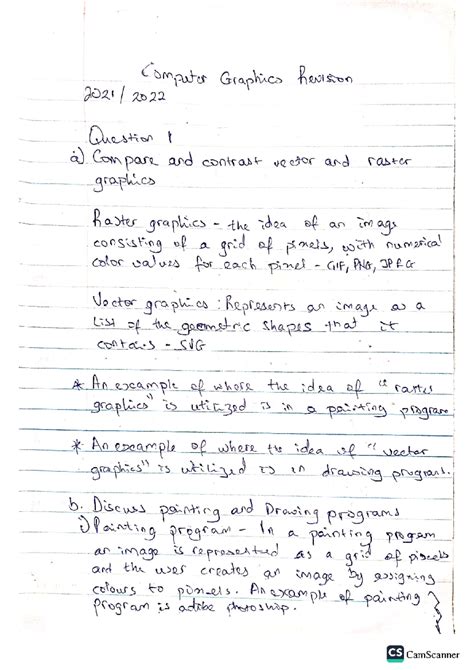 Computer Graphics Revision
2021/2022
Question 1
a) Compare and contrast vector and raster
graphics
Raster graphics - the idea of an image
consisting of a grid of pixels, with numerical
color values for each pixel - GIF, PNG, JPEG
Vector graphics : Represents an image as a
list of the geometric shapes that it
contains - SVG
* An example of where the idea of "raster
graphics" is utilized is in a painting program
* An example of where the idea of "vector
graphics" is utilized is in drawing program.
b. Discuss painting and Drawing programs
i) Painting program - In a painting program
an image is represented as a grid of pixels
and the user creates an image by assigning
colours to pixels. An example of painting
program is adobe photoshop.
CS CamScanner